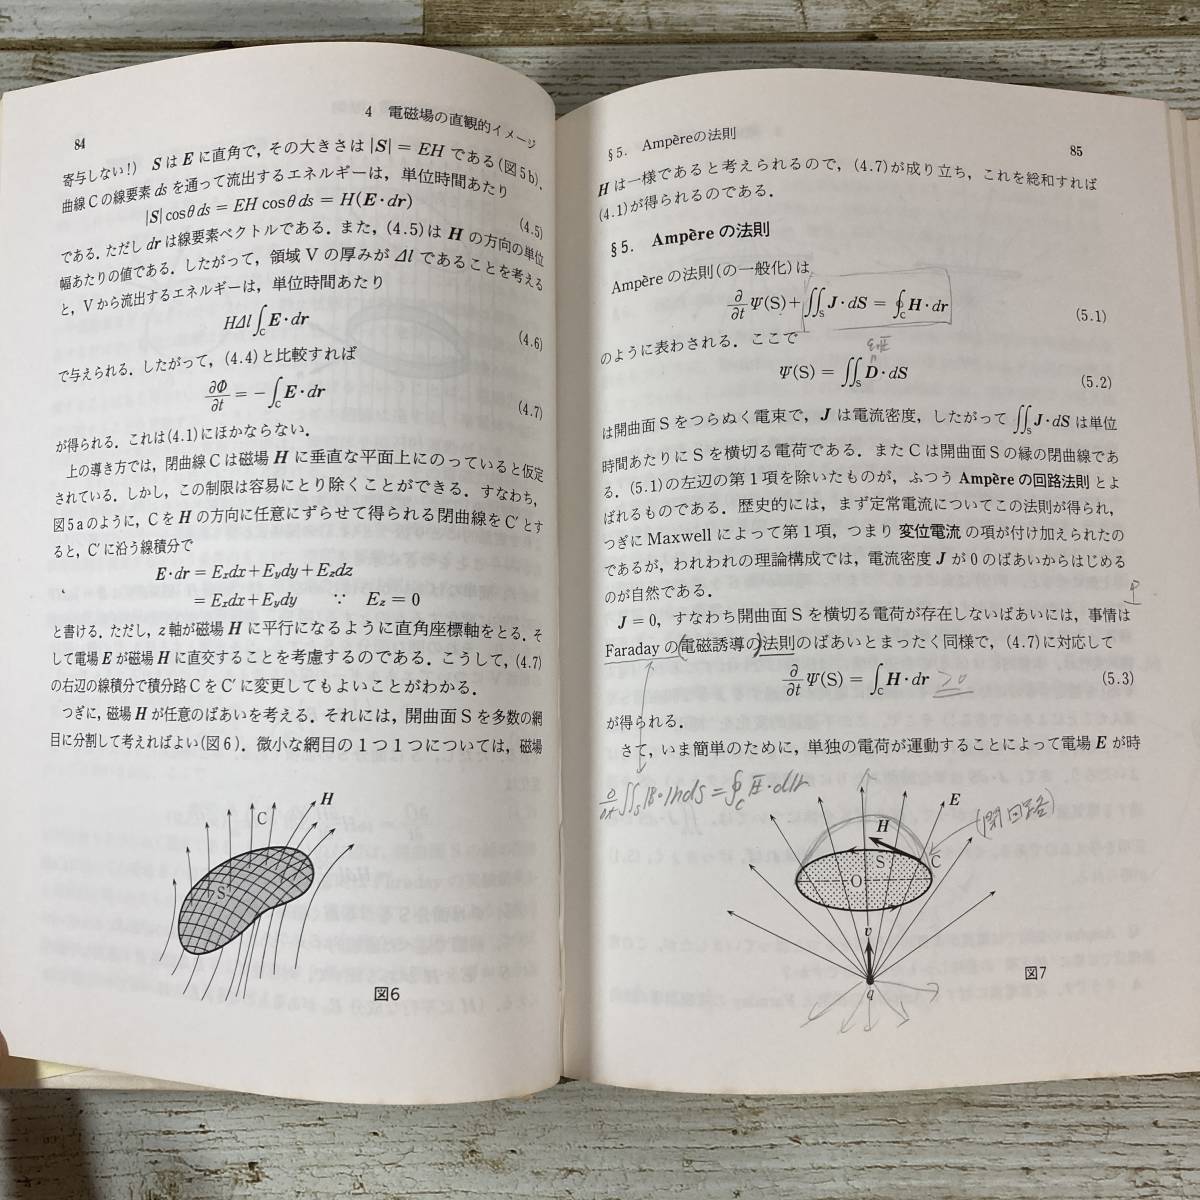 84
4 電磁場の直観的イメージ
寄与しない!) SはEに直角で,その大きさは|S|=EHである(図5b).
曲線Cの線要素dsを通って流出するエネルギーは,単位時間あたり
|S|cosθds=EHcosθds=H(E・dr) (4.5)
である.ただしdrは線要素ベクトルである.また,(4.5)はHの方向の単位
幅あたりの値である.したがって,領域Vの厚みがΔlであることを考える
と,Vから流出するエネルギーは,単位時間あたり
HΔl∫_C E・dr (4.6)
で与えられる.したがって,(4.4)と比較すれば
∂Φ/∂t=-∫_C E・dr (4.7)
が得られる.これは(4.1)にほかならない.
上の導き方では,閉曲線Cは磁場Hに垂直な平面上にのっていると仮定
されている.しかし,この制限は容易にとり除くことができる.すなわち,
図5aのように,CをHの方向に任意にずらせて得られる閉曲線をC′とす
ると,C′に沿う線積分で
E・dr=E_x dx+E_y dy+E_z dz
=E_x dx+E_y dy ∵ E_z=0
と書ける.ただし,z軸が磁場Hに平行になるように直角座標軸をとる.そ
して電場Eが磁場Hに直交することを考慮するのである.こうして,(4.7)
の右辺の線積分で積分路CをC′に変更してもよいことがわかる.
つぎに,磁場Hが任意のばあいを考える.それには,開曲面Sを多数の網
目に分割して考えればよい(図6).微小な網目の1つ1つについては,磁場
H
C
S
図6
§5. Ampèreの法則
85
Hは一様であると考えられるので,(4.7)が成り立ち,これを総和すれば
(4.1)が得られるのである.
§5. Ampèreの法則
Ampèreの法則(の一般化)は
∂/∂t Ψ(S)+∬_S J・dS=∮_C H・dr (5.1)
のように表わされる.ここで
Ψ(S)=∬_S D・dS (5.2)
は開曲面Sをつらぬく電束で,Jは電流密度,したがって∬_S J・dSは単位
時間あたりにSを横切る電荷である.またCは開曲面Sの縁の閉曲線であ
る.(5.1)の左辺の第1項を除いたものが,ふつうAmpèreの回路法則とよ
ばれるものである.歴史的には,まず定常電流についてこの法則が得られ,
つぎにMaxwellによって第1項,つまり変位電流の項が付け加えられたの
であるが,われわれの理論構成では,電流密度Jが0のばあいからはじめる
のが自然である.
J=0,すなわち開曲面Sを横切る電荷が存在しないばあいには,事情は
Faradayの(電磁誘導の)法則のばあいとまったく同様で,(4.7)に対応して
∂/∂t Ψ(S)=∫_C H・dr (5.3)
が得られる.
さて,いま簡単のために,単独の電荷が運動することによって電場Eが時
E
(閉回路)
H
S
C
O
v
q
図7